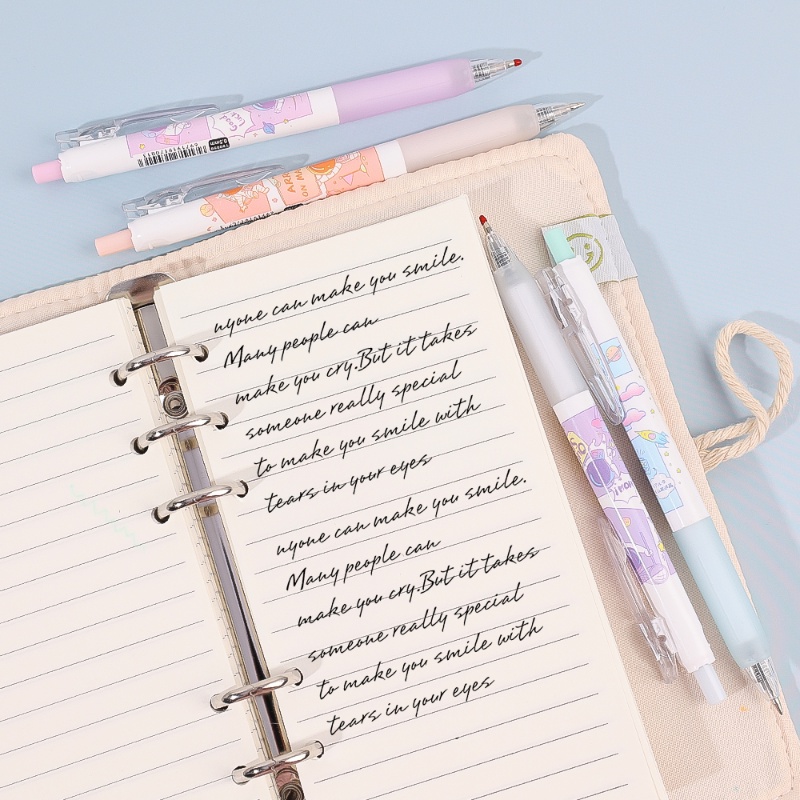 GOOD
LUCK
0.5mm
ARR
ON M
nyone can make you smile.
Many people can
make you cry.But it takes
someone really special
to make you smile with
tears in your eyes
nyone can make you smile.
Many people can
make you cry.But it takes
someone really special
to make you smile with
tears in your eyes